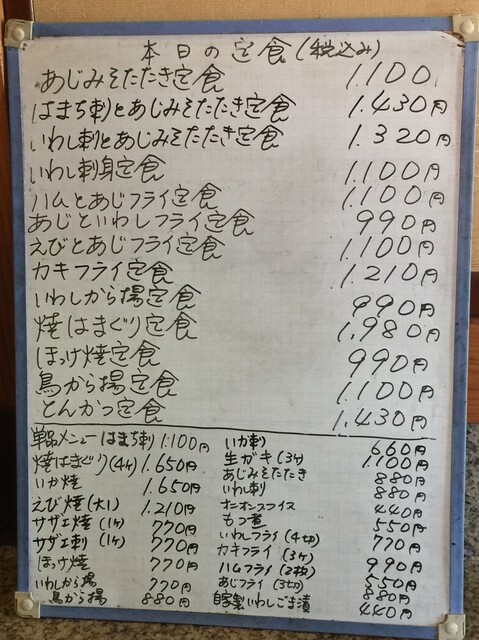 本日の定食(税込み)
あじみそたたき定食 1.100
はまち刺とあじみそたたき定食 1.430円
いわし刺とあじみそたたき定食 1.320円
いわし刺身定食 1.100円
ハムとあじフライ定食 1.100円
あじといわしフライ定食 990円
えびとあじフライ定食 1.100円
カキフライ定食 1.210円
いわしから揚定食 990円
焼はまぐり定食 1.980円
ほっけ焼定食 990円
鳥から揚定食 1.100円
とんかつ定食 1.430円
単品メニュー はまち刺 1.100円
焼はまぐり(4ヶ) 1.650円
いか焼 1.650円
えび焼(大1) 1.210円
サザエ焼(1ヶ) 770円
サザエ刺(1ヶ) 770円
ほっけ焼 770円
いわしから揚 770円
鳥から揚 880円
いか刺 660円
生ガキ(3ヶ) 1.100円
あじみそたたき 880円
いわし刺 880円
オニオンスライス 440円
もつ煮 550円
いわしフライ(4切) 770円
カキフライ(3ヶ) 990円
ハムフライ(2枚) 550円
あじフライ(3切) 880円
自家製いわしごま漬 440円